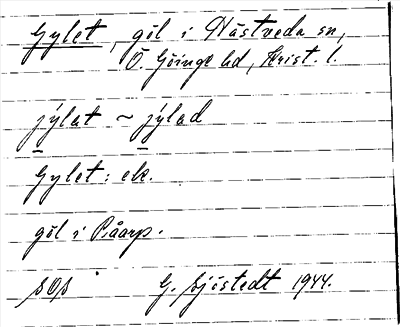 Gylet, göl i Hästveda sn,
Ö. Göinge hd, Krist. l.
jýlat ~ jýlad
Gylet: ek.
göl i Påarp.
SOS G. Sjöstedt 1944.